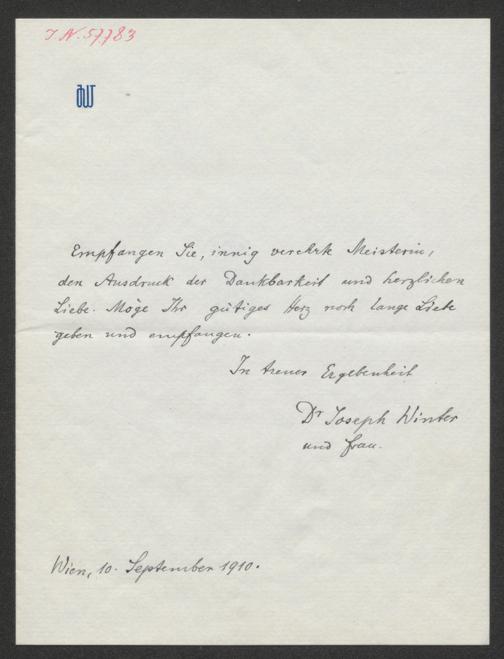 I.N. 57.783
JW
Empfangen Sie, innig verehrte Meisterin,
den Ausdruck der Dankbarkeit und herzlichen
Liebe. Möge Ihr gütiges Herz noch lange Liebe
geben und empfangen.
In treuer Ergebenheit
Dr Joseph Winter
und Frau.
Wien, 10. September 1910.